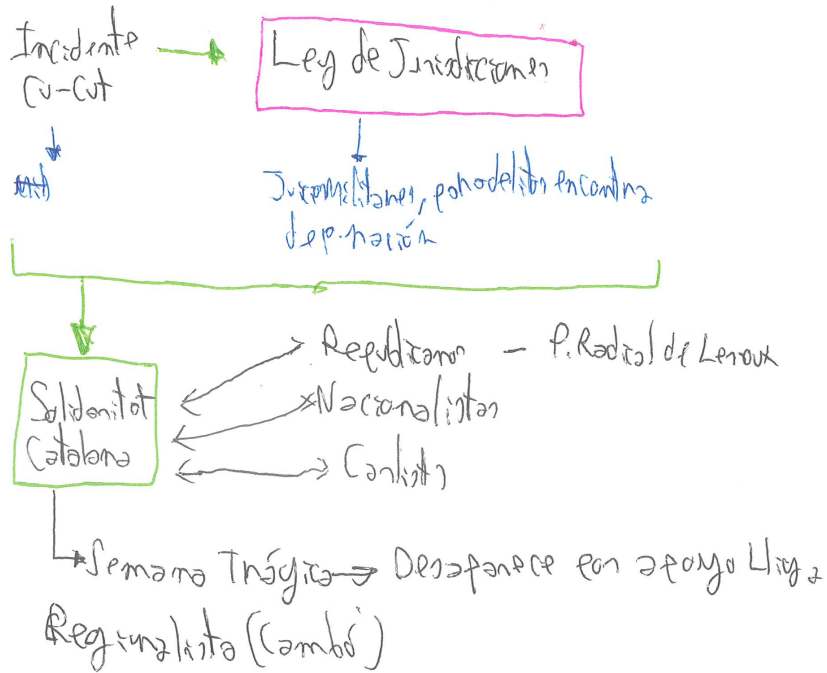 Incidente
Cu-Cut
Ley de Jurisdicciones
Juicio Militares, por delitos en contra
de p. nación
Solidaritat
Catalana
Republicanos – P. Radical de Lerroux
Nacionalistas
Carlistas
Semana Trágica → Desaparece por apoyo Lliga
Regionalista (Cambó)